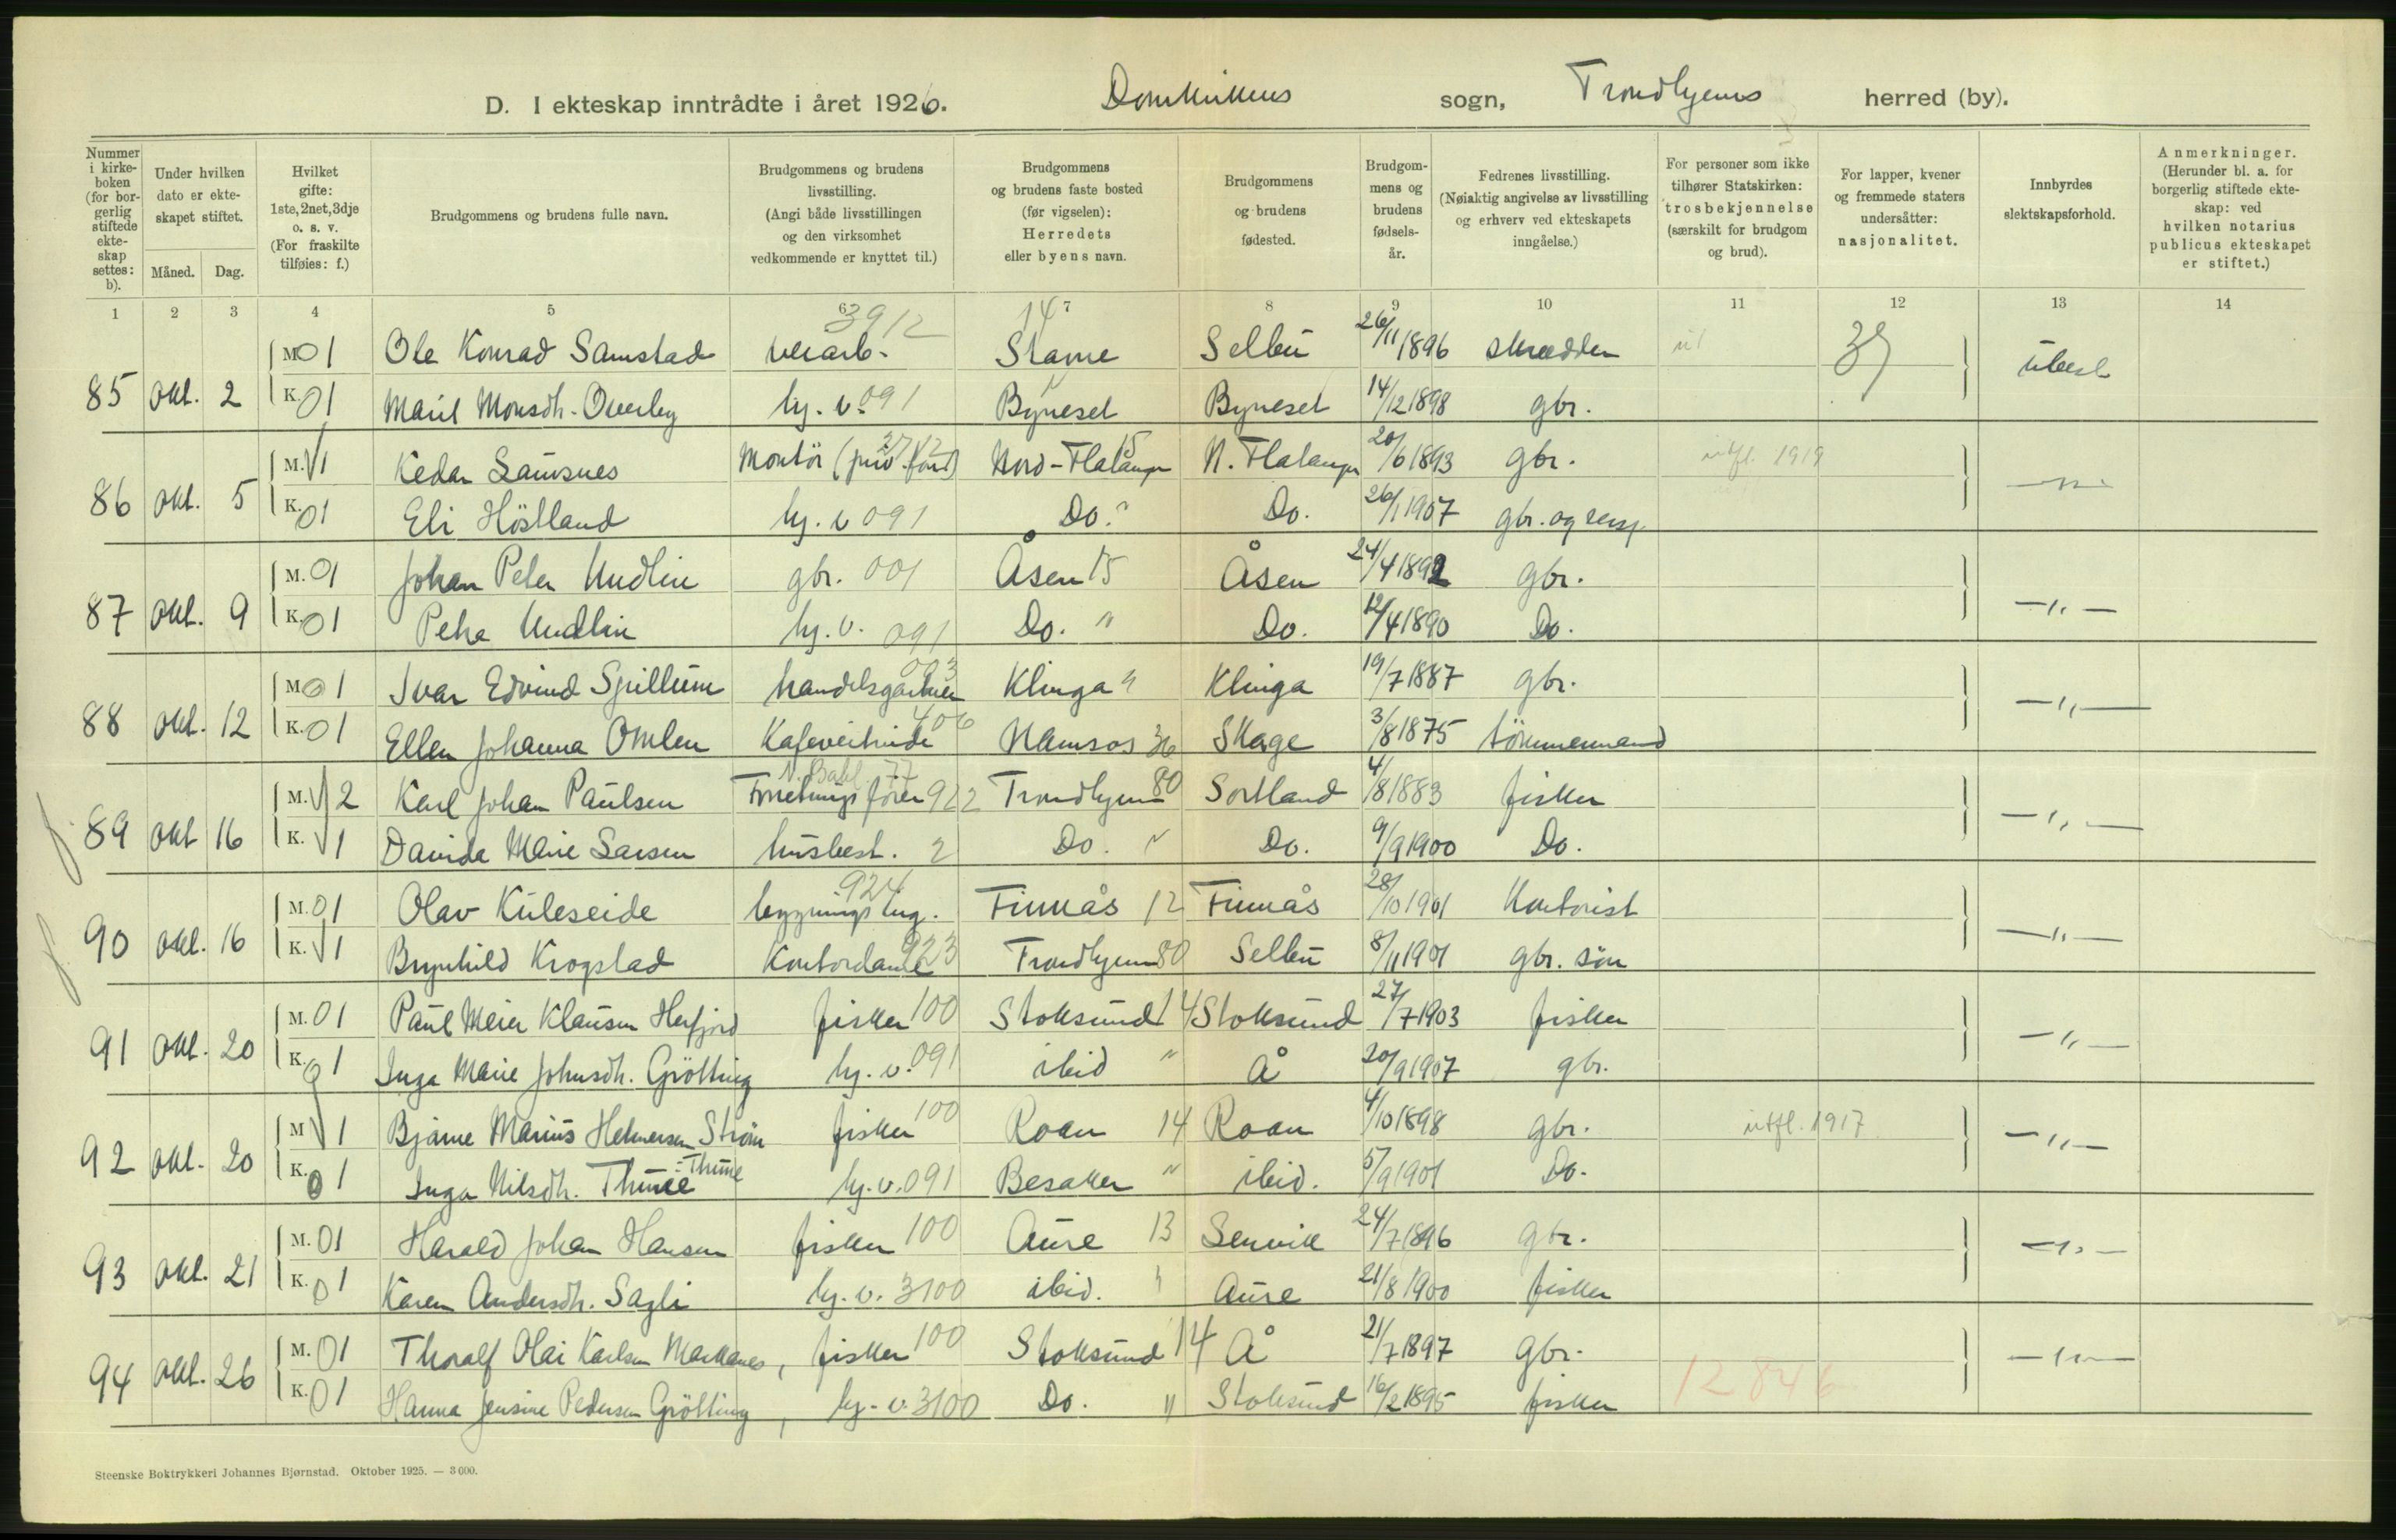 D. I ekteskap inntrådte i året 1926. Domkirkens sogn, Trondhjems herred (by).
Nummer i kirke-boken (for bor-gerlig stiftede ekte-skap settes: b).
Under hvilken dato er ekte-skapet stiftet.
Måned. Dag.
Hvilket gifte: 1ste, 2net, 3dje o. s. v. (For fraskilte tilføies: f.)
Brudgommens og brudens fulle navn.
Brudgommens og brudens livsstilling. (Angi både livsstillingen og den virksomhet vedkommende er knyttet til.)
Brudgommens og brudens faste bosted (før vigselen): Herredets eller byens navn.
Brudgommens og brudens fødested.
Brudgom-mens og brudens fødsels-år.
Fedrenes livsstilling. (Nøiaktig angivelse av livsstilling og erhverv ved ekteskapets inngåelse.)
For personer som ikke tilhører Statskirken: trosbekjennelse (særskilt for brudgom og brud).
For lapper, kvener og fremmede staters undersåtter: nasjonalitet.
Innbyrdes slektskapsforhold.
Anmerkninger. (Herunder bl. a. for borgerlig stiftede ekte-skap: ved hvilken notarius publicus ekteskapet er stiftet.)
1 2 3 4 5 6 7 8 9 10 11 12 13 14
3912 14
M. 01 Ole Konrad Samstad Stavne Selbu 26/11 1896 skredder
85 okt. 2 K. 01 Marit Monsdh. Overby hj. v. 091 Bynesel " Byneset 14/12 1898 gbr. ubesl
M. √1 Kedar Lausnes Montör 3712 Nord-Flatanger 15 N. Flatanger 20/6 1893 gbr. utfl. 1919
86 okt. 5 K. 01 Eli Höstland hj. v 091 Do. " Do. 26/1 1907 gbr. og —"—
M. 01 Johan Peter Undlin gbr. 001 Åsen 15 Åsen 24/4 1892 gbr.
87 okt. 9 K. 01 Undlin hj. v. 091 Do. " Do. 12/4 1890 Do. —"—
M. 01 Ivar Edvind Spillum handelsgartner 003 Klinga " Klinga 19/7 1887 gbr.
88 okt. 12 K. 01 Ellen Johanna Omlen Kafevertinde 406 Namsos 36 Skage 3/8 1875 tömmermand —"—
M. √2 Karl Johan Paulsen Forretningsfører 922 Trondhjem 80 Sortland 4/8 1883 fisker
89 okt 16 K. √1 Davida Marie Larsen husbest. 2 Do. " Do. 9/9 1900 Do. —"—
M. 01 Olav Kuleseide bygningsing. 924 Finnås 12 Finnås 28/10 1901 Kontorist
90 okt. 16 K. √1 Brynhild Krogstad Kontordame 923 Trondhjem 80 Selbu 8/11 1901 gbr. sön —"—
M. 01 Paul Meier Klausen Herfjord fisker 100 Stoksund 14 Stoksund 27/7 1903 fisker
91 okt. 20 K. 01 Inga Marie Johnsdh. Grötting hj. v. 091 ibid " Å 20/9 1907 gbr. —"—
M √1 Bjarne Marius Helmersen Ström fisker 100 Roan 14 Roan 4/10 1898 gbr. utfl. 1917
92 okt. 20 K. 01 Inga Nilsdh. Thune : Thune hj. v. 091 Besaker " ibid. 5/9 1901 Do. —"—
M. 01 Harald Johan Hansen fisker 100 Aure 13 Senvik 24/7 1896 gbr.
93 okt. 21 K. 01 Karen Andersdh. Sagli hj. v. 3100 ibid. " Aure 21/8 1900 fisker —"—
M. 01 Thoralf Olai Karlsen Markanes, fisker 100 Stoksund 14 Å 21/7 1897 gbr.
94 okt. 26 K. 01 Hanna Jensine Pedersen Grötting, hj. v. 3100 Do. " Stoksund 16/2 1895 fisker 12846 —"—
Steenske Boktrykkeri Johannes Bjørnstad. Oktober 1925. — 3 000.